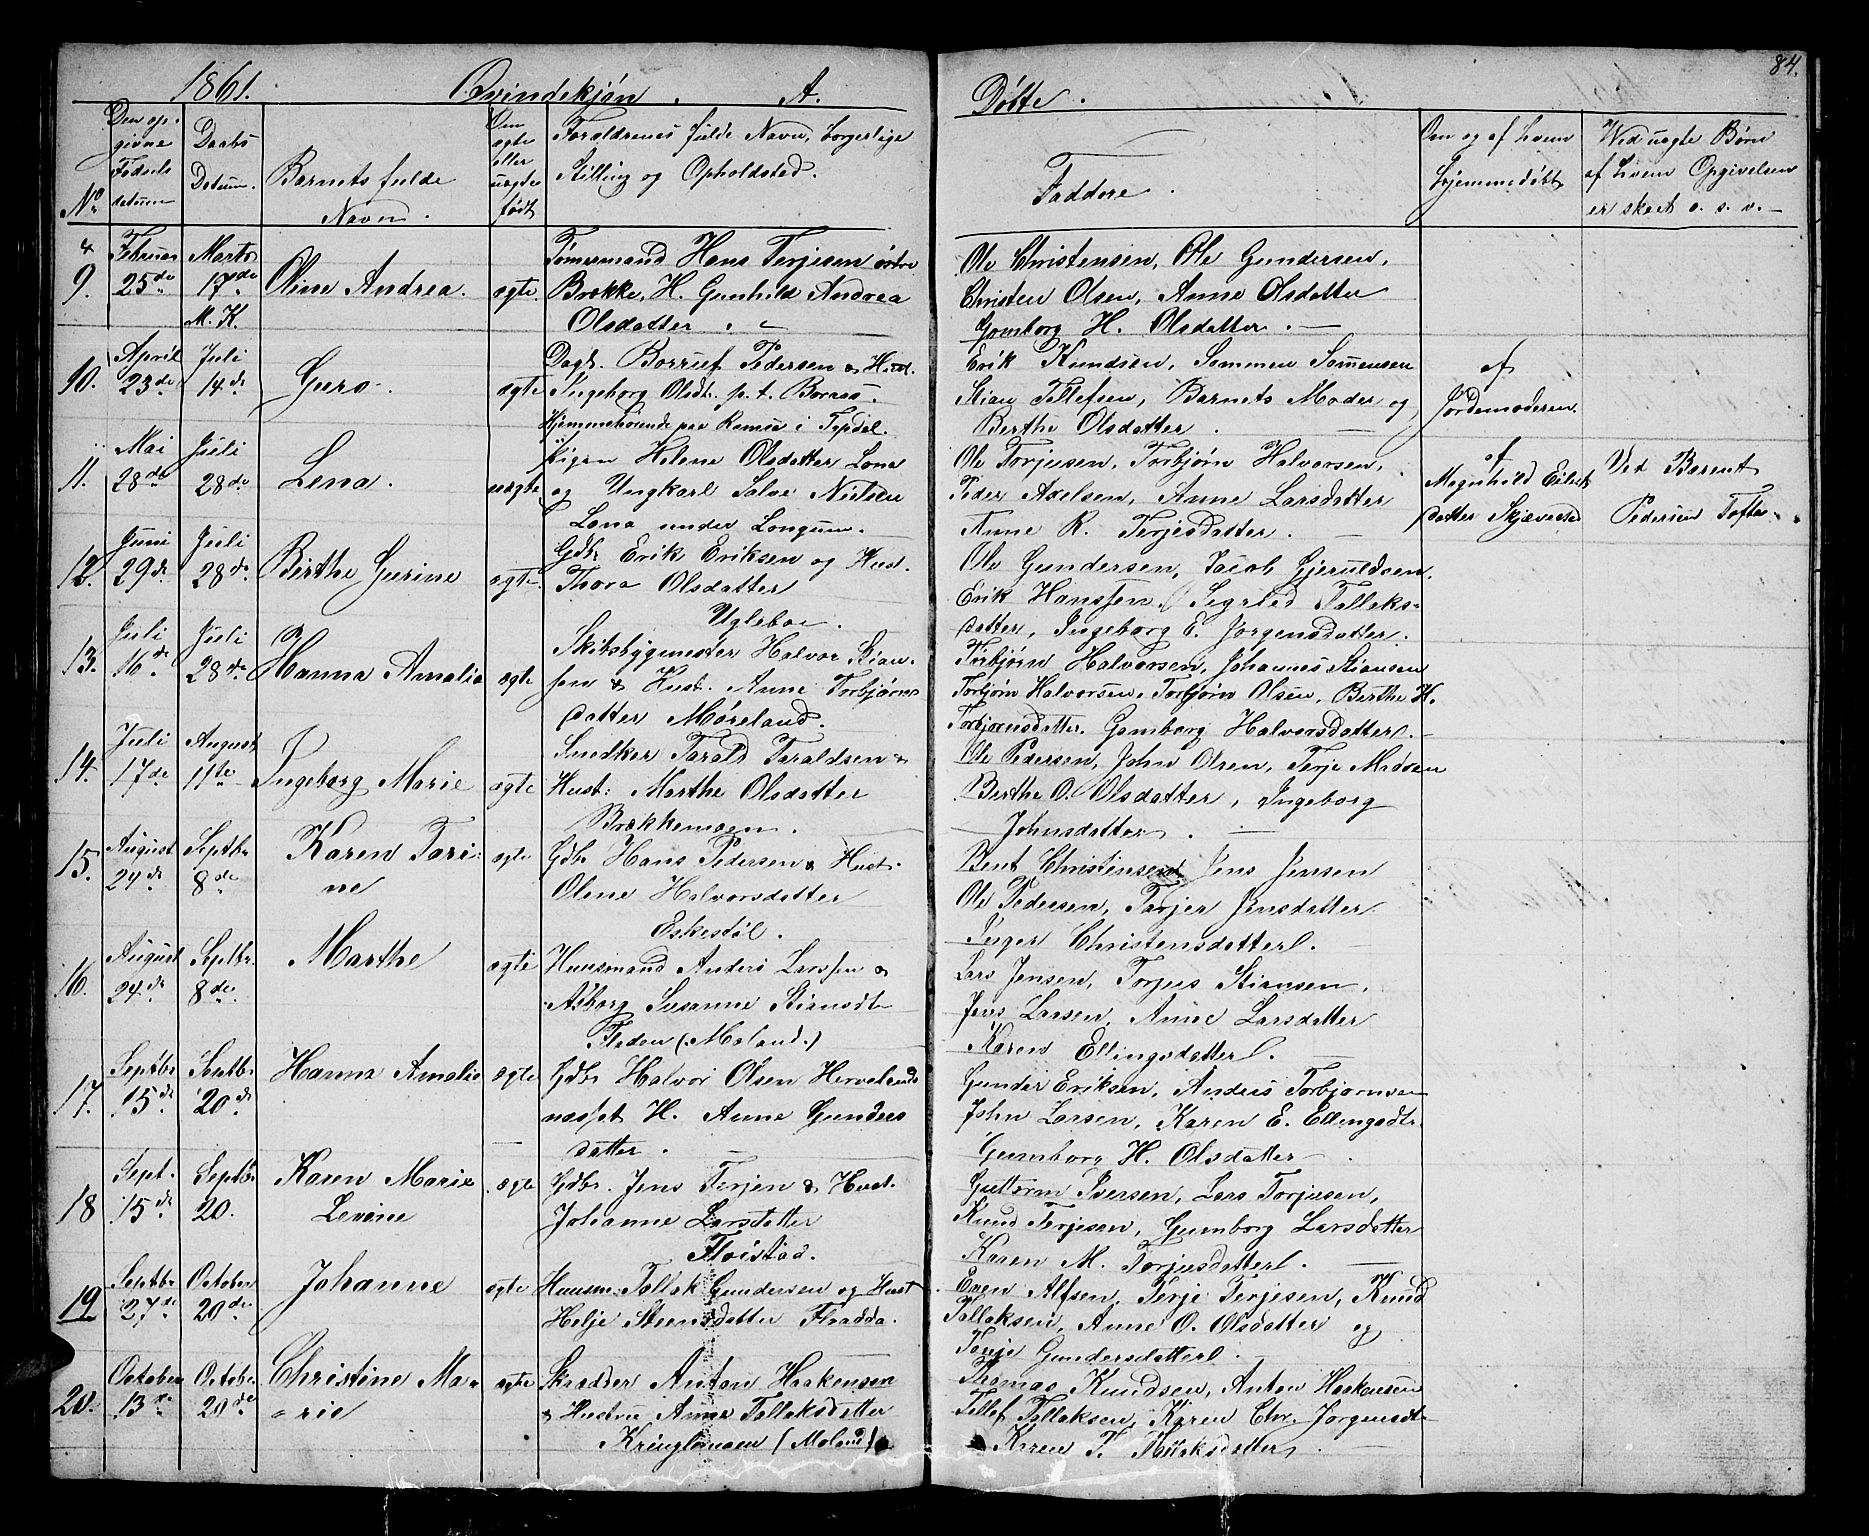 84.
1861. Qvindekjøn. A. Døbte.
No
Den opgivne Fødselsdatum
Daabs Datum.
Barnets fulde Navn.
Om ægte eller uægte født
Forældrenes fulde Navn, borgerlige Stilling og Opholdsted.
Faddere.
Om og af hvem hjemmedøbt
Ved uægte Børn af hvem Opgivelsen er skeet o. s. v.
9. Februar 25de Marts 17de M. K. Oline Andrea. ægte.
Tømermand Hans Terjesen
Brekke, H. Gunhild Andrea
Olsdatter.
Ole Christensen, Ole Gundersen,
Christen Olsen, Anne Olsdatter
Gomborg H. Olsdatter.
10. April 23de Juli 14de Guro. ægte
Dagb. Pedersen & Hust.
Ingeborg Olsdt. p. t.
Hjemmehørende paa i
Erik Knudsen, Sommen Somensen
Stian Tellefsen, Barnets Moder og
Berthe Olsdatter.
af
Jordemoderen.
11. Mai 28de Juli 28de Lena. uægte
Pigen Helene Olsdatter Lona
og Ungkarl Salve Nielsen
Lona under Longum.
Ole Torjusen, Torbjørn Halvorsen,
Peder Axelsen, Anne Larsdatter
Anne R. Terjesdatter.
af
Magnhild
datter
Ved Berent
Pedersen Tofte.
12. Juni 29de Juli 28de Birthe Gurine ægte.
Gdbr Erik Eriksen og Hust.
Thora Olsdatter
Ugleboe.
Ole Gundersen, Jacob Gjeruldsen,
Erik Hanssen, Segrled Talleks-
datter, Ingeborg E. Jørgensdatter.
13. Juli 16de Juli 28de Hanna Amalia ægte
Skibsbygmester Halvor Stian-
sen & Hust. Anne Torbjørns
datter Møreland.
Torbjørn Halvorsen, Johannes Stiansen
Torbjørn Halvorsen, Torbjørn Olsen, Berthe H.
Torbjørnsdatter, Gomborg Halvorsdatter.
14. Juli 17de August 11te Ingeborg Marie ægte
Snedker Tarald Taraldsen &
Hust: Marthe Olsdatter
Brækkemoen.
Ole Pedersen, John Olsen, Terje Madsen
Berthe O. Olsdatter, Ingeborg
Johnsdatter.
15. August 24de Septbr 8de Karen Tori-
ne ægte
Gdbr Hans Pedersen & Hust.
Olene Halvorsdatter
Eskestøl.
Bent Christensen Jens Jensen
Ole Pedersen, Tarjer Jensdatter
Inger Christensdatter.
16. August 24de Septbr. 8de Marthe ægte
Huusmand Anders Larssen &
Asborg Susanne Stiansdt
Fladen (Moland.)
Lars Jensen, Torjus Stiansen,
Jens Larsen, Anne Larsdatter
Karen Ellingsdatter.
17. Septbr 15de Septbr 20de Hanna Amalie ægte
Gdbr Halvor Olsen
H. Anne Gunders
datter.
Gunder Eriksen, Anders Torbjørnsen
John Larsen, Karen E. Ellingsdtr.
Gumborg H. Olsdatter.
18 Sept. 15de Septbr 20. Karen Marie
Levine ægte
Gdbr. Jens Terjen & Hust.
Johanne Larsdatter
Fløistad.
Guttorm Iversen, Lars Torjusen,
Knud Terjesen, Gumborg Larsdatter
Karen M. Torjusdatter.
19 Septbr 27de October 20de Johanne ægte
Huusm: Tallak Gundersen og Hust
Helje Steensdatter Fladda.
Even Alfsen, Terje Terjesen, Knud
Tallaksen, Anne O. Olsdatter og
Tonje Gundersdatter.
20. October 13de October 20de Christine Ma-
rie ægte
Skrædder Anton Haakensen
& Hustru Anne Tallaksdatter
Kringlemoen (Moland)
Thomas Knudsen, Anton Haakensen
Tellef Tallaksen, Karen Chr. Jørgensdt
Karen T. Tallaksdatter.